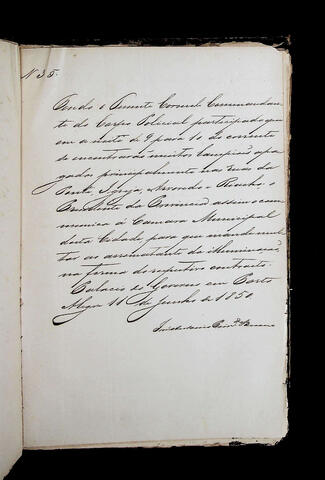 N 35.
Tendo o Tenente Coronel Commandan-
te do Corpo Policial participado que
em a noite de 9 para 10 do corrente
se encontrarão muitos lampiões apa-
gados principalmente nas ruas da
Ponte, Igreja, Arvoredo e Riacho: o
Presidente da Provincia assim o com-
munica á Camara Municipal
desta Cidade para que mande mul-
tar ao arrematante da illuminação
na forma do respectivo contracto.
Palacio do Governo em Porto
Alegre 11 de Junho de 1850